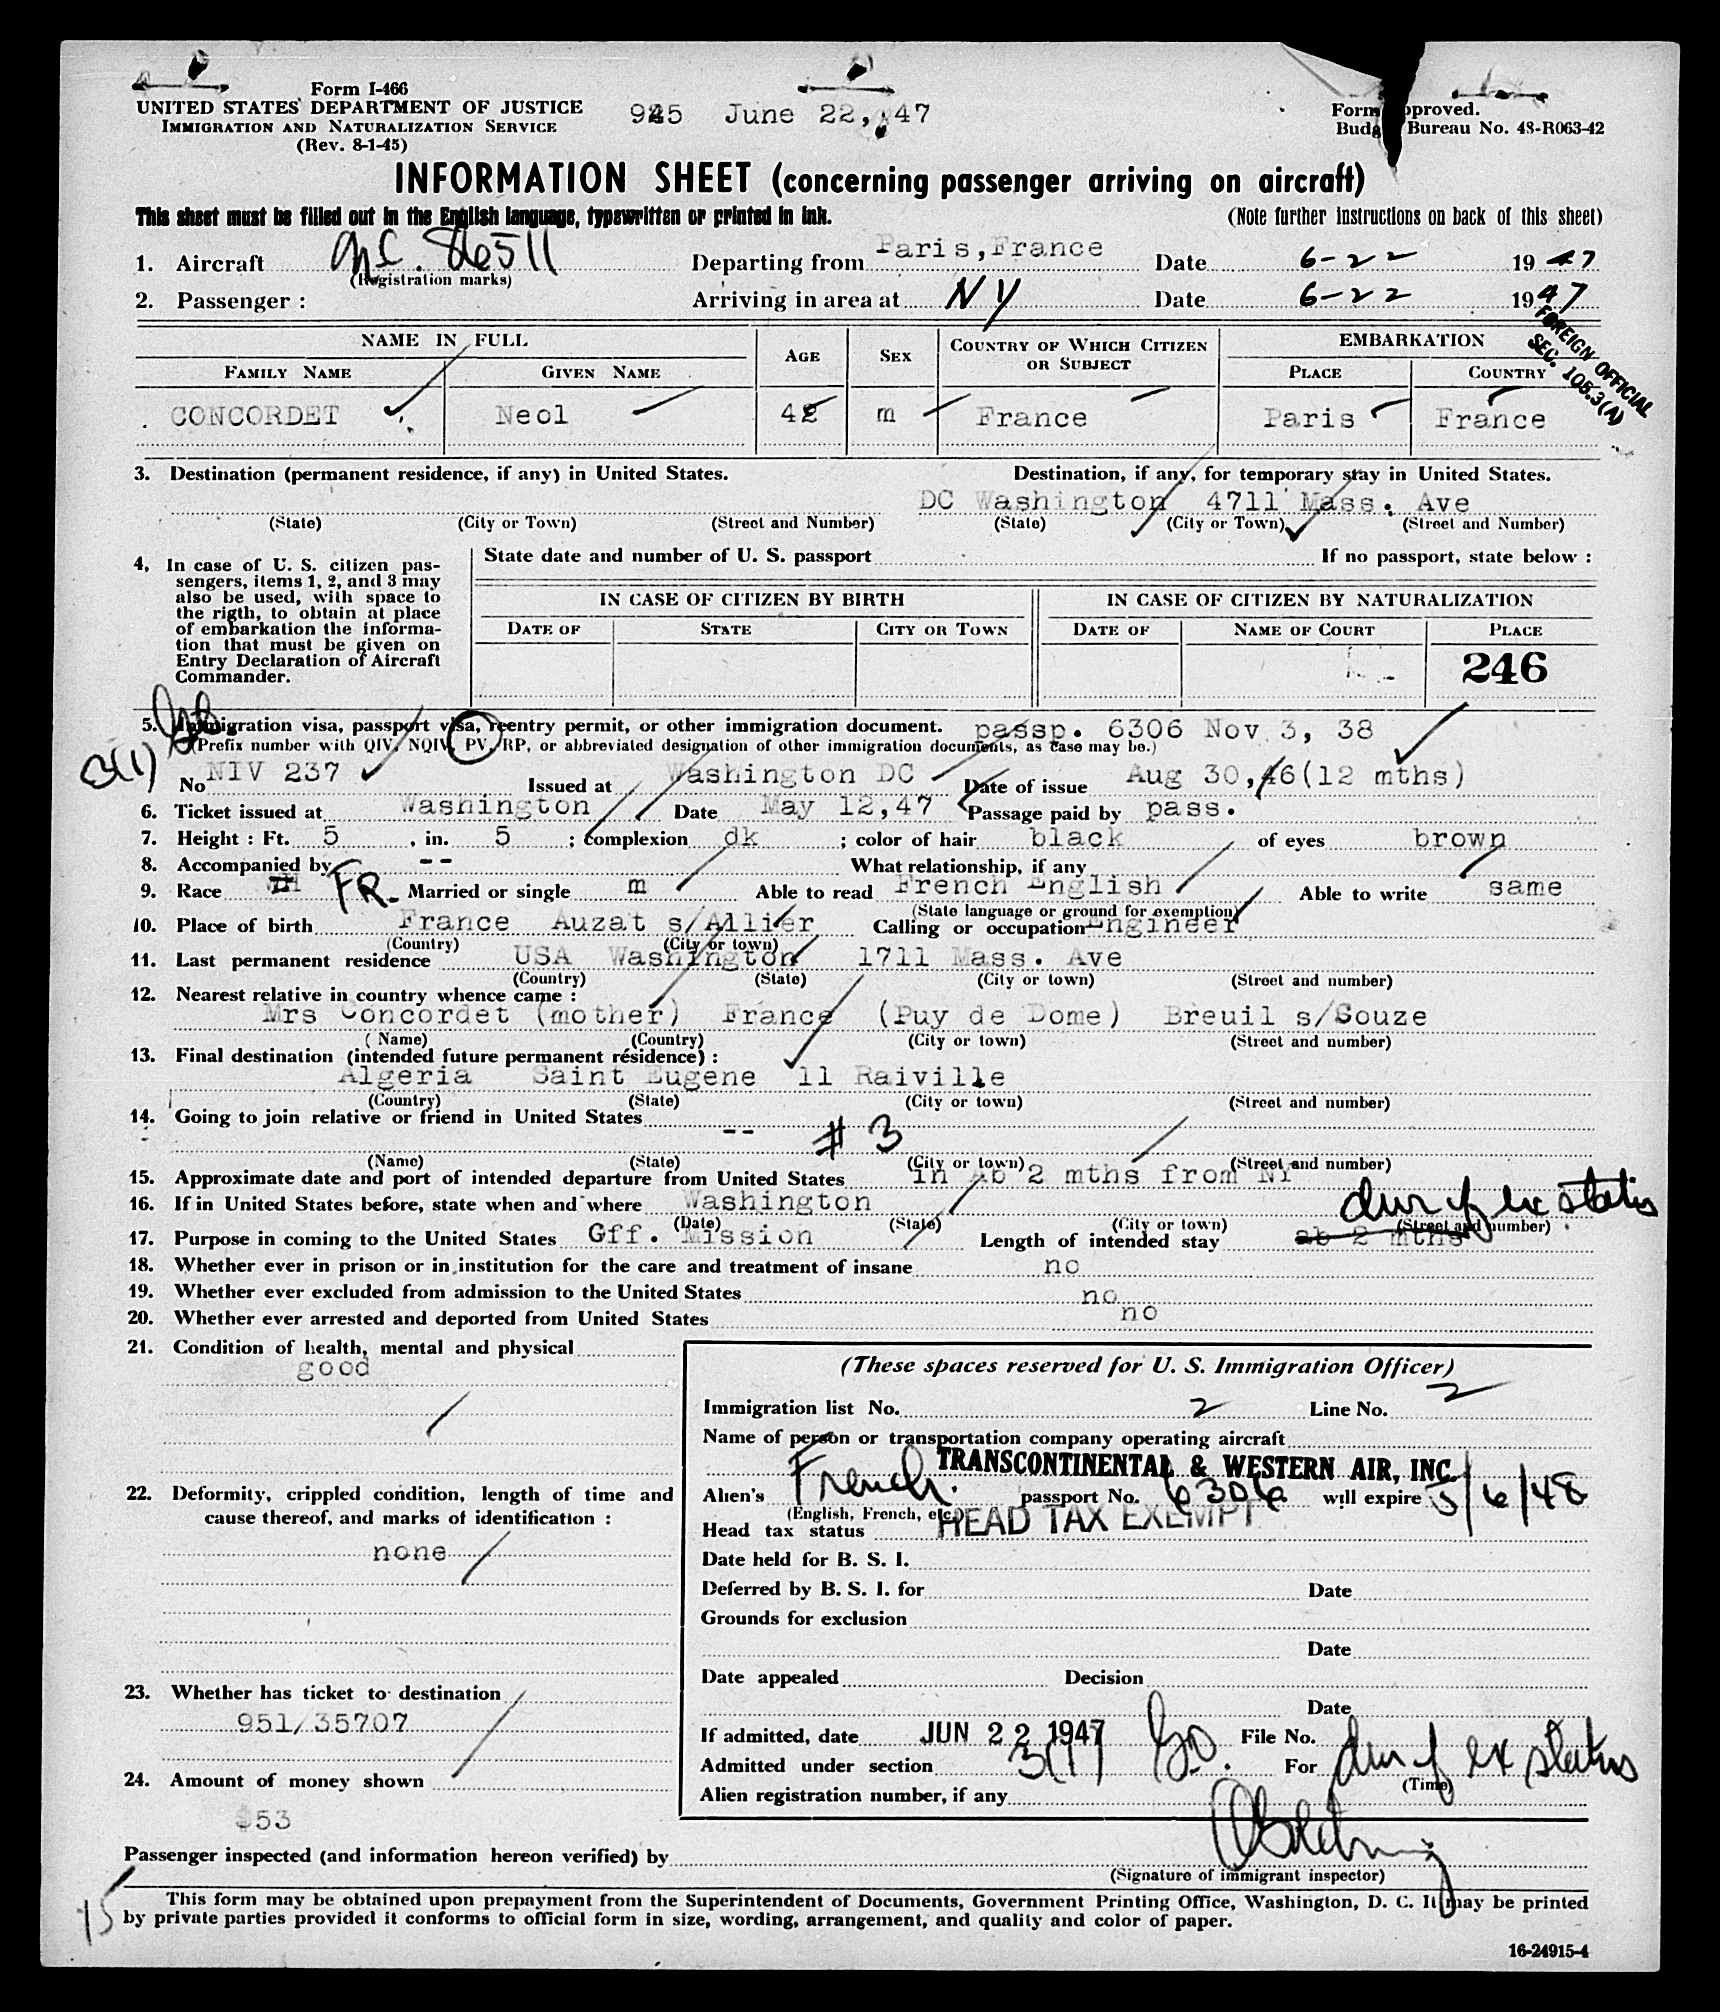 Form I-466
UNITED STATES DEPARTMENT OF JUSTICE
IMMIGRATION AND NATURALIZATION SERVICE
(Rev. 8-1-45)
925 June 22, 47
Form Approved.
Budg Bureau No. 48-R063-42
INFORMATION SHEET (concerning passenger arriving on aircraft)
This sheet must be filled out in the English language, typewritten or printed in ink.
(Note further instructions on back of this sheet)
1. Aircraft NC. 86511 Departing from Paris, France Date 6-22 1947
(Registration marks)
2. Passenger : Arriving in area at NY Date 6-22 1947
FOREIGN OFFICIAL
SEC. 105.3(A)
NAME IN FULL AGE SEX COUNTRY OF WHICH CITIZEN OR SUBJECT EMBARKATION
FAMILY NAME GIVEN NAME PLACE COUNTRY
CONCORDET Neol 42 m France Paris France
3. Destination (permanent residence, if any) in United States. Destination, if any, for temporary stay in United States.
DC Washington 4711 Mass. Ave
(State) (City or Town) (Street and Number) (State) (City or Town) (Street and Number)
4, In case of U. S. citizen pas-
sengers, items 1, 2, and 3 may
also be used, with space to
the rigth, to obtain at place
of embarkation the informa-
tion that must be given on
Entry Declaration of Aircraft
Commander.
State date and number of U. S. passport If no passport, state below :
IN CASE OF CITIZEN BY BIRTH IN CASE OF CITIZEN BY NATURALIZATION
DATE OF STATE CITY OR TOWN DATE OF NAME OF COURT PLACE
246
5. Immigration visa, passport visa, reentry permit, or other immigration document. passp. 6306 Nov 3, 38
(Prefix number with QIV, NQIV, PV, RP, or abbreviated designation of other immigration documents, as case may be.)
3(1)
No NIV 237 Issued at Washington DC Date of issue Aug 30,46(12 mths)
6. Ticket issued at Washington Date May 12,47 Passage paid by pass.
7. Height : Ft. 5 , in. 5 ; complexion dk ; color of hair black of eyes brown
8. Accompanied by -- What relationship, if any
9. Race FR. Married or single m Able to read French English Able to write same
(State language or ground for exemption)
10. Place of birth France Auzat s/Allier Calling or occupation Engineer
(Country) (City or town)
11. Last permanent residence USA Washington 1711 Mass. Ave
(Country) (State) (City or town) (Street and number)
12. Nearest relative in country whence came :
Mrs Concordet (mother) France (Puy de Dome) Breuil s/Couze
( Name) (Country) (City or town) (Street and number)
13. Final destination (intended future permanent résidence) :
Algeria Saint Eugene 11 Raiville
(Country) (State) (City or town) (Street and number)
14. Going to join relative or friend in United States --
# 3
(Name) (State) (City or town) (Street and number)
15. Approximate date and port of intended departure from United States in ab 2 mths from NY
16. If in United States before, state when and where Washington
(Date) (State) (City or town) (Street and number)
dur of ex status
17. Purpose in coming to the United States Gff. Mission Length of intended stay ab 2 mths
18. Whether ever in prison or in institution for the care and treatment of insane no
19. Whether ever excluded from admission to the United States no
20. Whether ever arrested and deported from United States no
21. Condition of health, mental and physical
good
22. Deformity, crippled condition, length of time and
cause thereof, and marks of identification :
none
23. Whether has ticket to destination
951/35707
24. Amount of money shown
$53
(These spaces reserved for U. S. Immigration Officer)
Immigration list No. 2 Line No. 2
Name of person or transportation company operating aircraft
TRANSCONTINENTAL & WESTERN AIR, INC.
Alien's French. passport No. 6306 will expire 5/6/48
(English, French, etc.)
Head tax status HEAD TAX EXEMPT
Date held for B. S. I.
Deferred by B. S. I. for Date
Grounds for exclusion
Date
Date appealed Decision
Date
If admitted, date JUN 22 1947 File No.
Admitted under section 3(1) For dur of ex status
(Time)
Alien registration number, if any
Passenger inspected (and information hereon verified) by
(Signature of immigrant inspector)
15
This form may be obtained upon prepayment from the Superintendent of Documents, Government Printing Office, Washington, D. C. It may be printed
by private parties provided it conforms to official form in size, wording, arrangement, and quality and color of paper.
16-24915-4